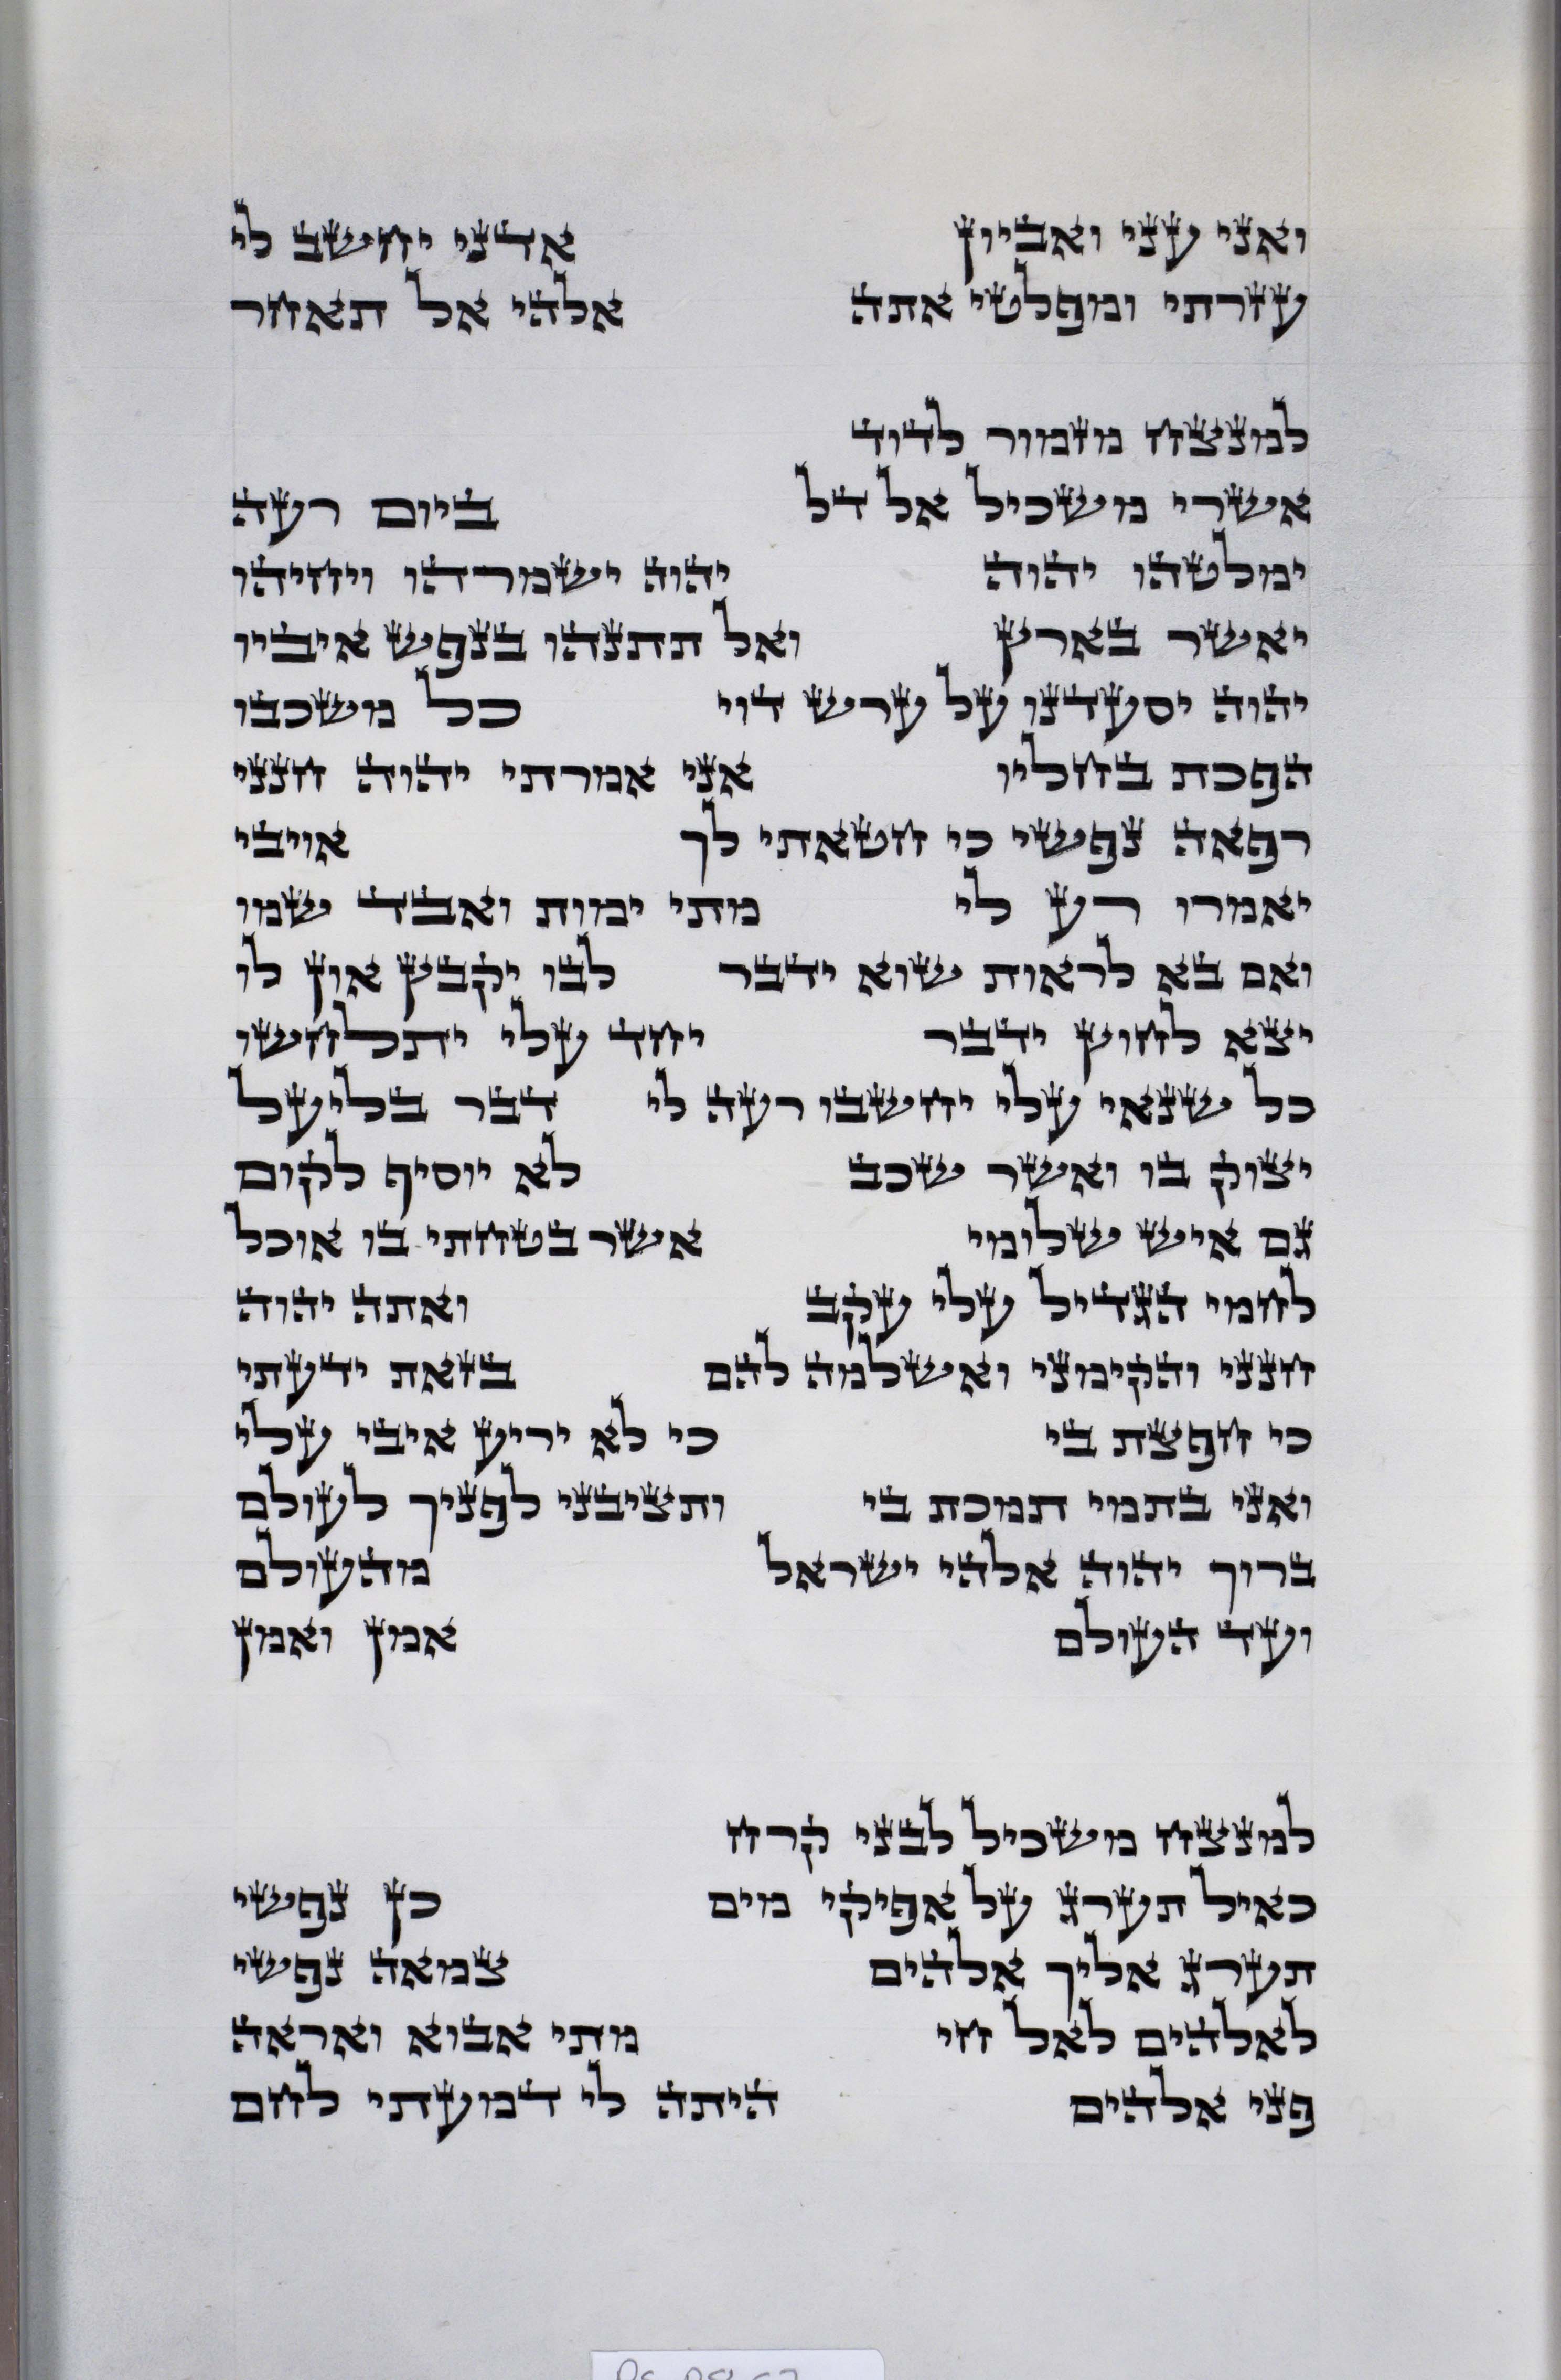 ואני עני ואביון אדני יחשב לי
עזרתי ומפלטי אתה אלהי אל תאחר
למנצח מזמור לדוד
אשרי משכיל אל דל ביום רעה
ימלטהו יהוה יהוה ישמרהו ויחיהו
יאשר בארץ ואל תתנהו בנפש איביו
יהוה יסעדנו על ערש דוי כל משכבו
הפכת בחליו אני אמרתי יהוה חנני
רפאה נפשי כי חטאתי לך אויבי
יאמרו רע לי מתי ימות ואבד שמו
ואם בא לראות שוא ידבר לבו יקבץ און לו
יצא לחוץ ידבר יחד עלי יתלחשו
כל שנאי עלי יחשבו רעה לי דבר בליעל
יצוק בו ואשר שכב לא יוסיף לקום
גם איש שלומי אשר בטחתי בו אוכל
לחמי הגדיל עלי עקב ואתה יהוה
חנני והקימני ואשלמה להם בזאת ידעתי
כי חפצת בי כי לא יריע איבי עלי
ואני בתמי תמכת בי ותציבני לפניך לעולם
ברוך יהוה אלהי ישראל מהעולם
ועד העולם אמן ואמן
למנצח משכיל לבני קרח
כאיל תערג על אפיקי מים כן נפשי
תערג אליך אלהים צמאה נפשי
לאלהים לאל חי מתי אבוא ואראה
פני אלהים היתה לי דמעתי לחם